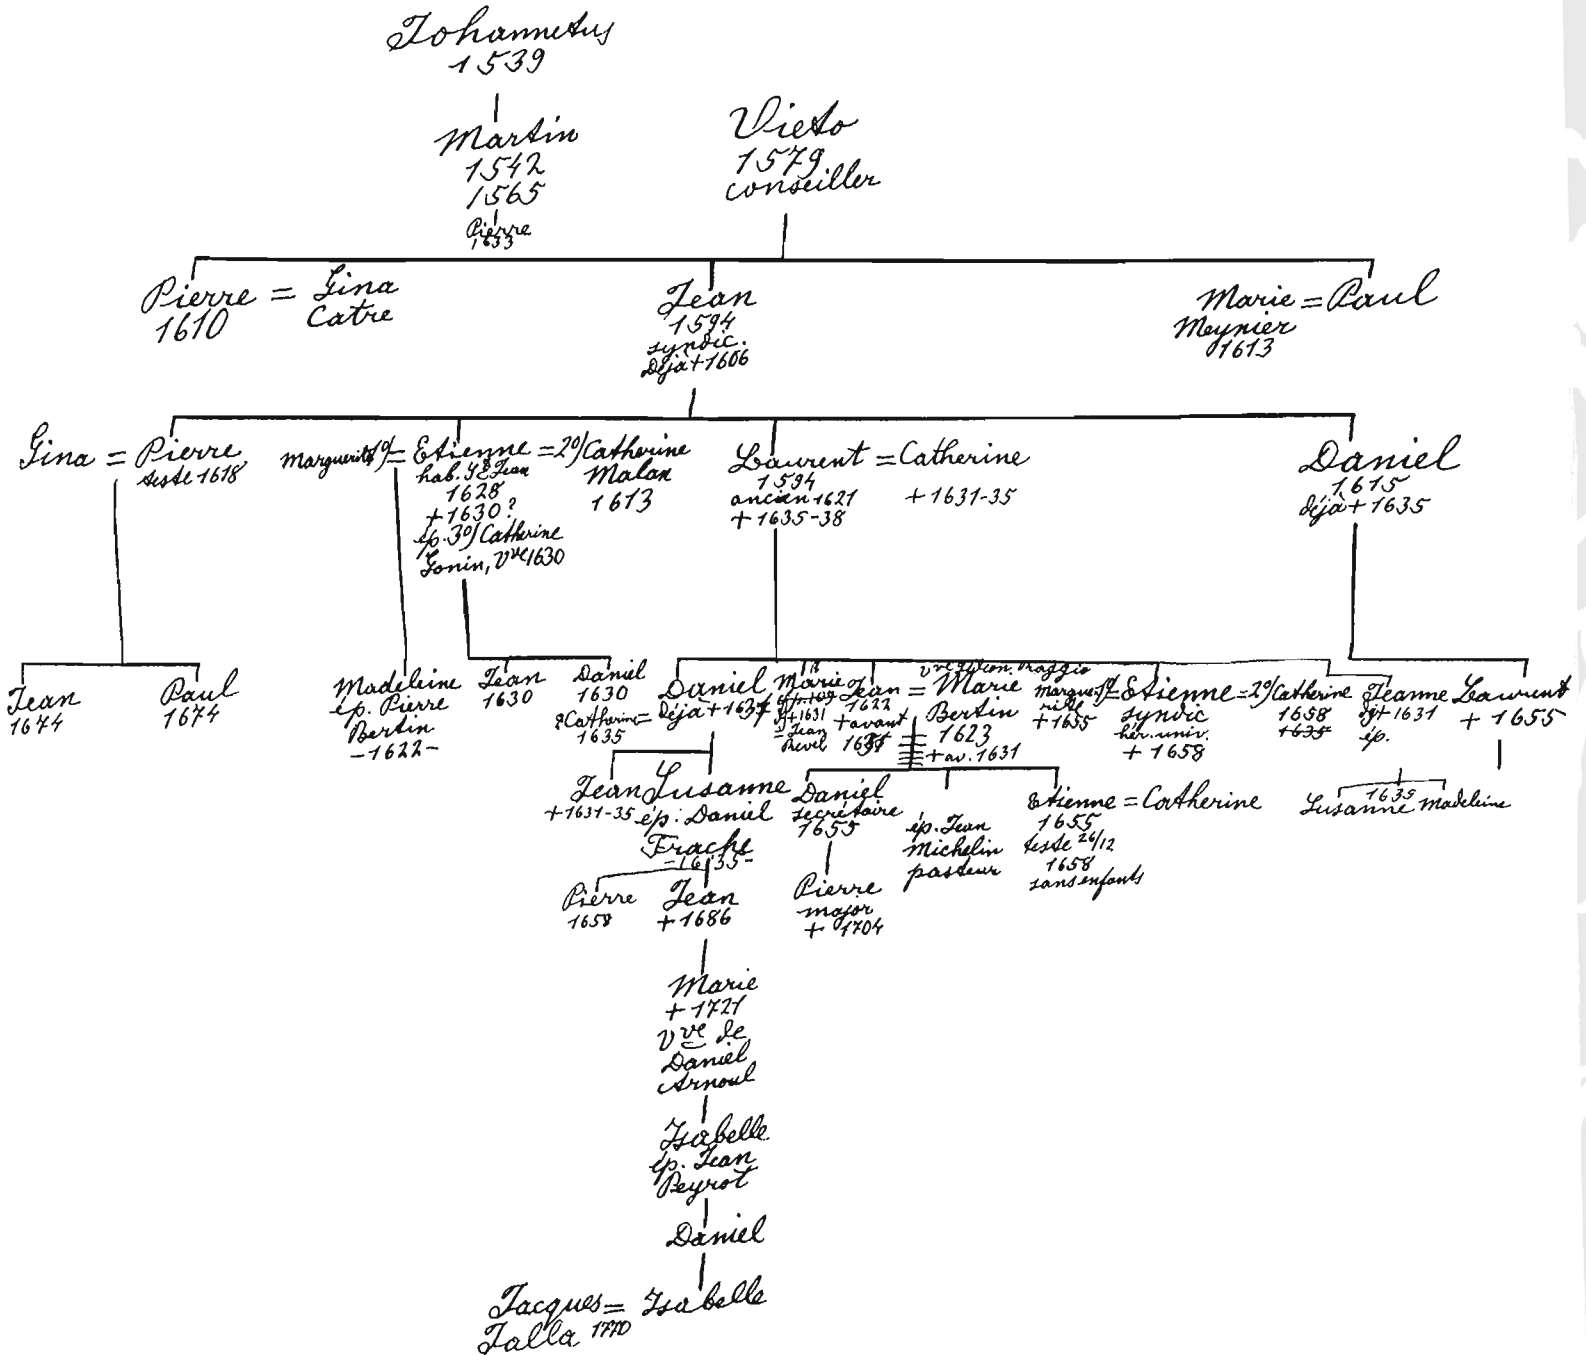 Johannetus
1539
Martin
1542
1565
Pierre
1633
Vieto
1579
conseiller
Pierre = Gina
1610
Catre
Jean
1594
syndic.
Déjà + 1606
Marie = Paul
Meynier
1613
Gina = Pierre
teste 1618
Marguerite 1º/= Etienne = 2º/Catherine
Malan
1613
hab. S. Jean
1628
+ 1630?
ép. 3º/Catherine
Gonin, Vve 1630
Laurent = Catherine
1594
ancien 1621
+ 1635-38
+ 1631-35
Daniel
1615
déjà + 1635
Jean
1674
Paul
1674
Madeleine
ép. Pierre
Bertin
- 1622 -
Jean
1630
Daniel
1630
Catherine =
1635
Daniel
Déjà + 1631
Marie
+ 1631
= Jean
Revel
Jean = Marie
1622
+ avant
Bertin
1623
+ av. 1631
Margue-
rite
+ 1655
1º/= Etienne = 2º/Catherine
syndic
hér. univ.
+ 1658
1658
1635
Jeanne
+ 1631
ép.
Laurent
+ 1655
Jean
+ 1631-35
Susanne
ép. Daniel
Frache
- 1635 -
Daniel
secrétaire
1655
ép. Jean
Michelin
pasteur
Etienne = Catherine
1655
teste 26/12
1658
sans enfants
1635
Susanne Madeleine
Pierre
1658
Jean
+ 1686
Pierre
major
+ 1704
Marie
+ 1721
Vve de
Daniel
Arnoul
Isabelle
ép. Jean
Peyrot
Daniel
Jacques = Isabelle
Jalla 1770